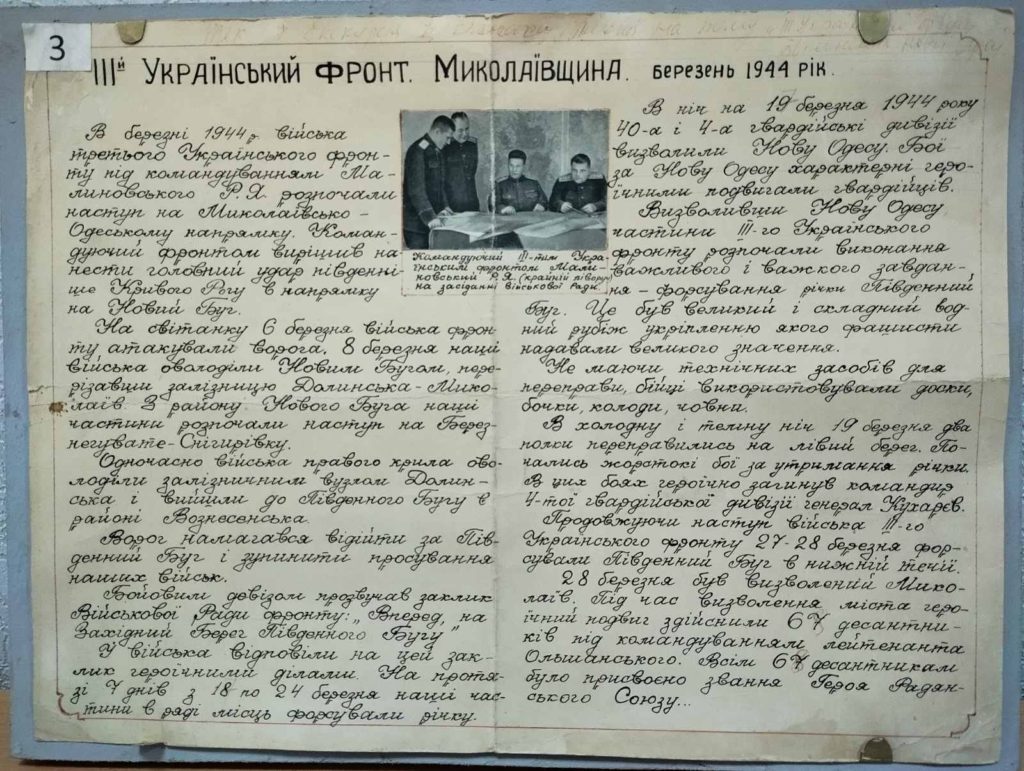 3
IIIй Український фронт. Миколаївщина. березень 1944 рік.
В березні 1944 р війська
третього Українського фрон-
ту під командуванням Ма-
линовського Р.Я розпочали
наступ на Миколаївсько -
Одеському напрямку. Коман-
дуючий фронтом вирішив на-
нести головний удар південні-
ше Кривого Рогу в напрямку
на Новий Буг.
На світанку 6 березня війська фрон-
ту атакували ворога. 8 березня наші
війська оволоділи Новим Бугом, пере-
різавши залізницю Долинська - Мико-
лаїв. З району Нового Буга наші
частини розпочали наступ на Берез-
негувате - Снігирівку.
Одночасно війська правого крила ово-
лоділи залізничним вузлом Долин-
ська і вийшли до Південного Бугу в
районі Вознесенська.
Ворог намагався відійти за Пів-
денний Буг і зупинити просування
наших військ.
Бойовим девізом прозвучав заклик
Військової Ради фронту: „Вперед, на
Західний Берег Південного Бугу"
У війська відповіли на цей зак-
лик героїчними ділами. На протя-
зі 7 днів з 18 по 24 березня наші час-
тини в ряді місць форсували річку.
Командуючий III-тим Укра-
їнським фронтом Мали-
новський Р.Я. (крайній піворуч)
на засіданні військової Ради.
В ніч на 19 березня 1944 року
40-а і 4-а гвардійські дивізії
визволили Нову Одесу. Бої
за Нову Одесу характерні геро-
їчними подвигами гвардійців.
Визволивши Нову Одесу
частини III-го Українського
фронту розпочали виконання
важливого і важкого завдан-
ня - форсування річки Південний
Буг. Це був великий і складний вод-
ний рубіж укріпленню якого фашисти
надавали великого значення.
Не маючи технічних засобів для
переправи, бійці використовували доски,
бочки, колоди, човни.
В холодну і темну ніч 19 березня два
полки переправились на лівий берег. По-
чались жорстокі бої за утримання річки.
В цих боях героїчно загинув командир
4-тої гвардійської дивізії генерал Кухарєв.
Продовжуючи наступ війська III-го
Українського фронту 27-28 березня фор-
сували Південний Буг в нижній течії.
28 березня був визволений Мико-
лаїв. Під час визволення міста геро-
їчний подвиг здійснили 67 десантни-
ків під командуванням лейтенанта
Ольшанського. Всім 67 десантникам
було присвоєно звання Героя Радян-
ського Союзу...